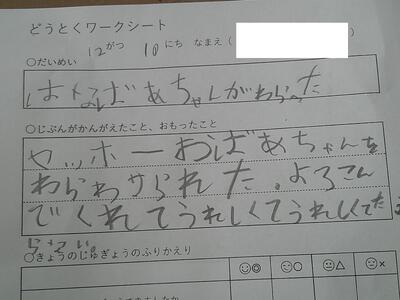 どうとくワークシート
12がつ 10にち なまえ（ ）
○だいめい
はなばあちゃんがわらった
○じぶんがかんがえたこと、おもったこと
ヤッホーおばあちゃんを
わらわサられた。よろこん
でくれてうれしくてうれしくてた
○きょうのじゅぎょうのふりかえり
☺◎ ☺○ 😐△ ☹×